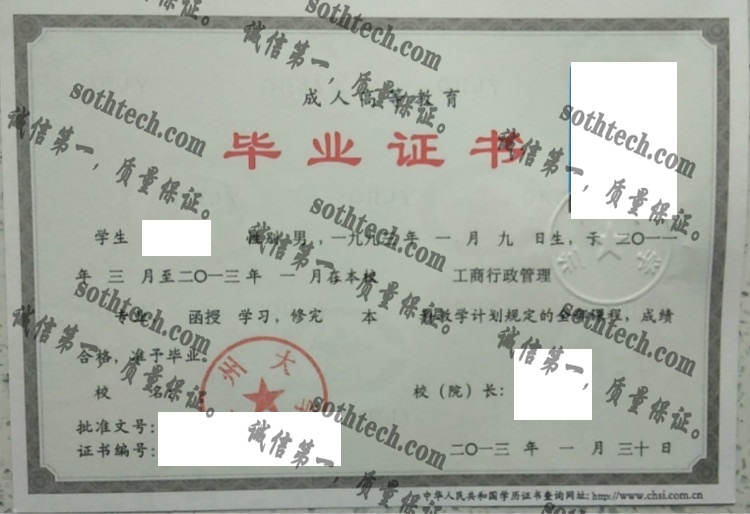 成人高等教育
毕业证书
学生 性别 男，一九九 年 一 月 九 日生，于 二〇一一
年 三 月至二〇一三年 一 月在本校 工商行政管理
专业 函授 学习，修完 本 科教学计划规定的全部课程，成绩
合格，准予毕业。
校 名： 校（院）长：
批准文号：
证书编号： 二〇一三 年 一 月 三十 日
州大学
中华人民共和国学历证书查询网址：http://www.chsi.com.cn
sothtech.com
诚信第一，质量保证。
sothtech.com
诚信第一，质量保证。
sothtech.com
诚信第一，质量保证。
sothtech.com
诚信第一，质量保证。
sothtech.com
诚信第一，质量保证。
sothtech.com
诚信第一，质量保证。
sothtech.com
诚信第一，质量保证。
sothtech.com
诚信第一，质量保证。